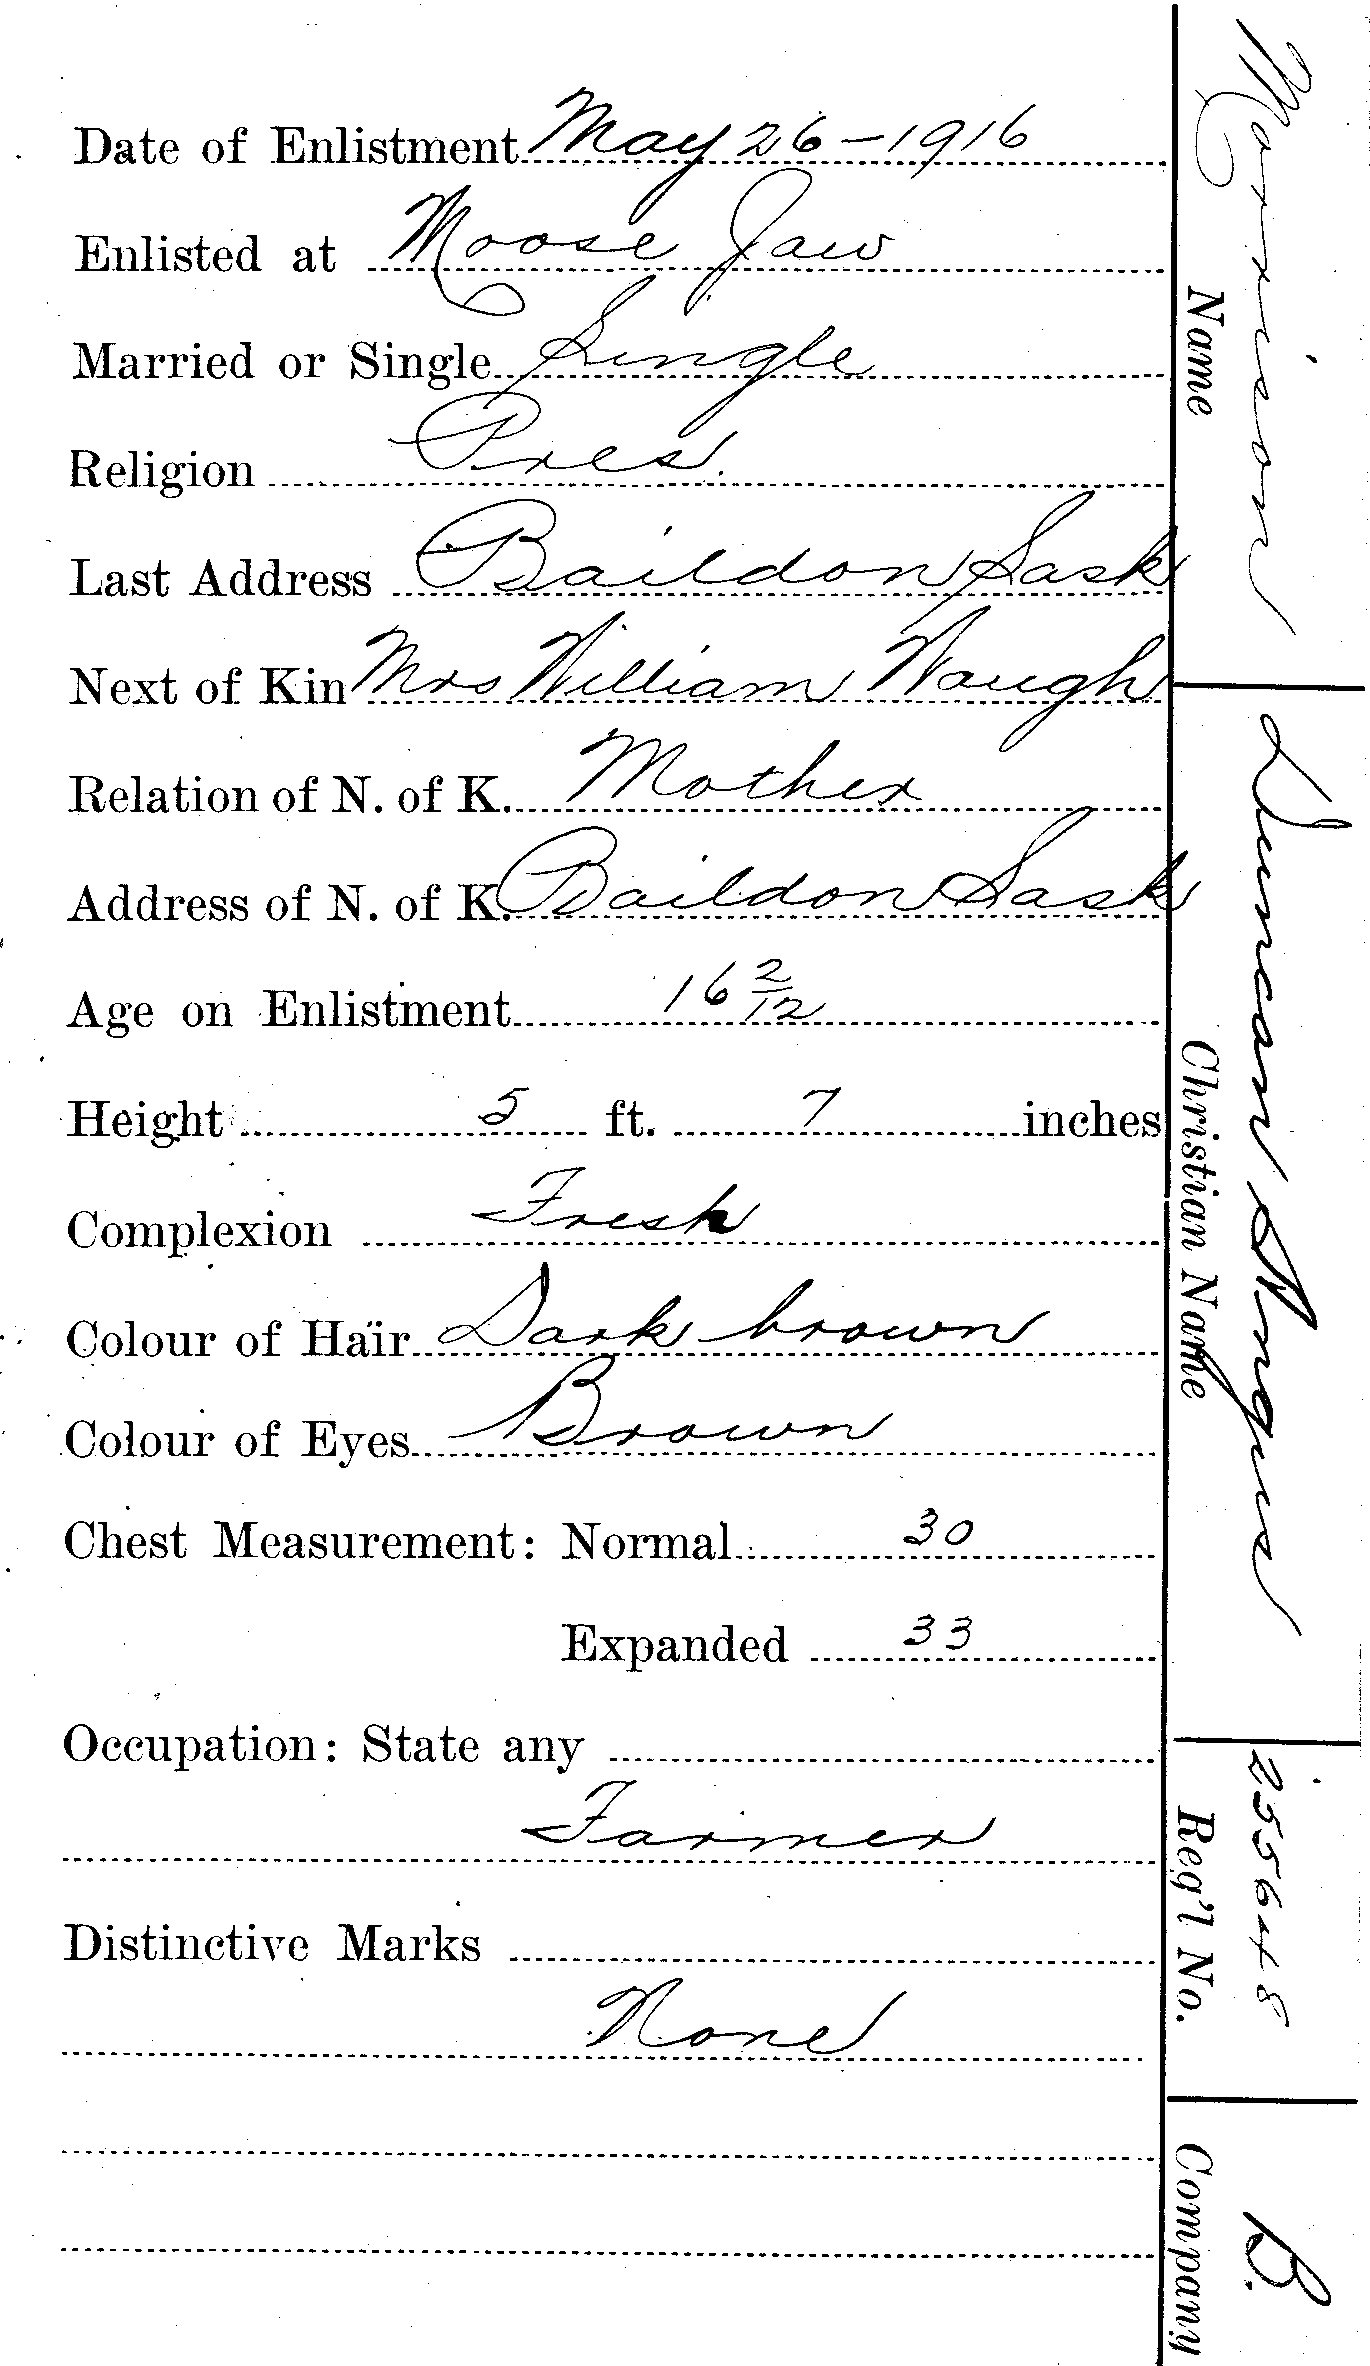 Date of Enlistment May 26-1916
Enlisted at Moose Jaw
Married or Single Single
Religion Pres.
Last Address Baildon Sask
Next of Kin Mrs William Waugh
Relation of N. of K. Mother
Address of N. of K. Baildon Sask
Age on Enlistment 16 2/12
Height 5 ft. 7 inches
Complexion Fresh
Colour of Hair Dark brown
Colour of Eyes Brown
Chest Measurement: Normal 30
Expanded 33
Occupation: State any
Farmer
Distinctive Marks
None
Morrison
Name
Duncan Angus
Christian Name
255648
Reg'l No.
B.
Company